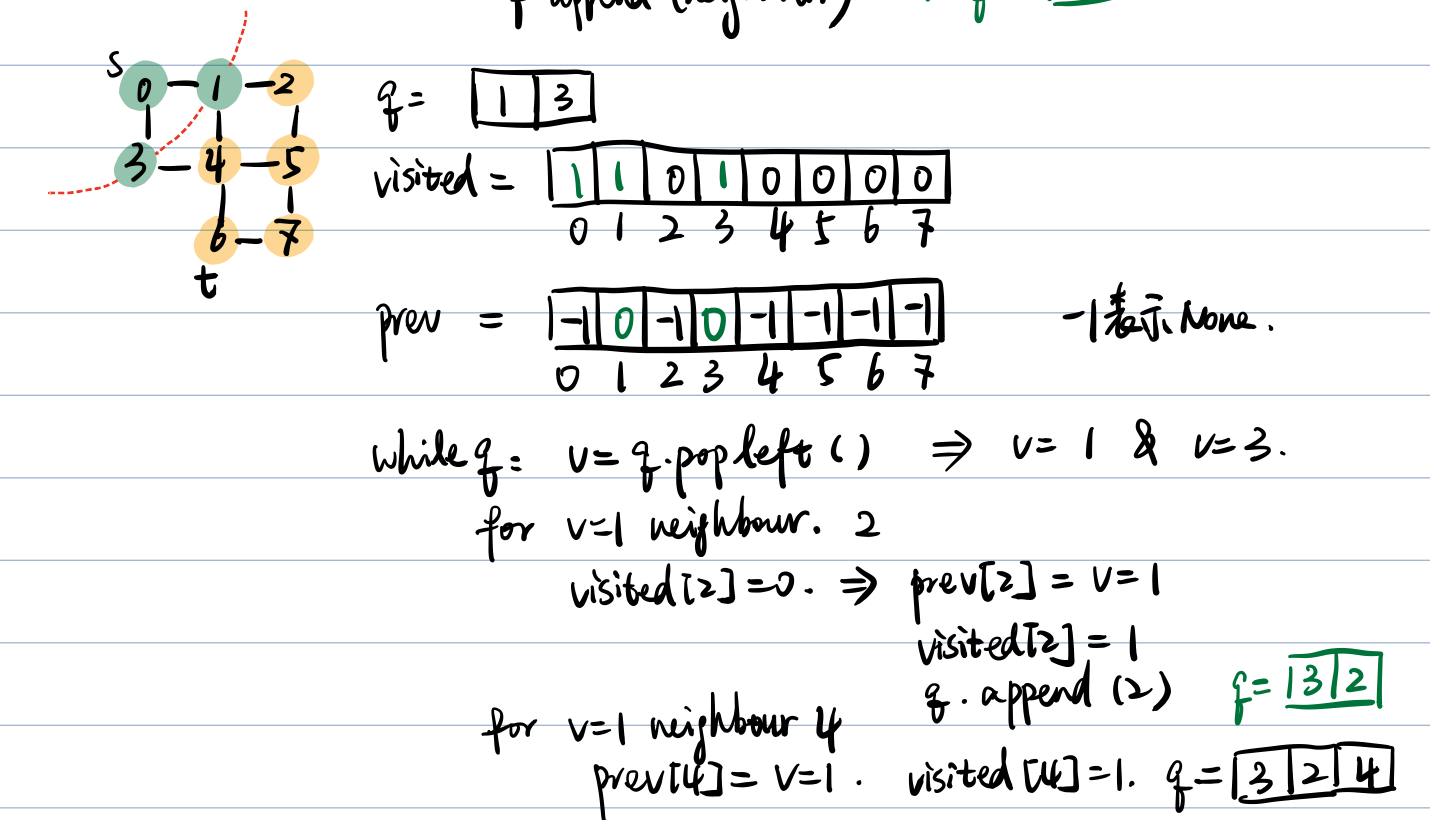 append (neighbour)
s
0 1 2
3 4 5
6 7
t
q = 1 3
visited = 1 1 0 1 0 0 0 0
0 1 2 3 4 5 6 7
prev = -1 0 -1 0 -1 -1 -1 -1
-1表示None.
0 1 2 3 4 5 6 7
while q: v = q.popleft () ⇒ v = 1 & v = 3.
for v=1 neighbour. 2
visited [2] = 0. ⇒ prev[2] = v = 1
visited[2] = 1
q. append (2) q = 3 2
for v=1 neighbour 4
prev[4] = v=1. visited [4] = 1. q = 3 2 4